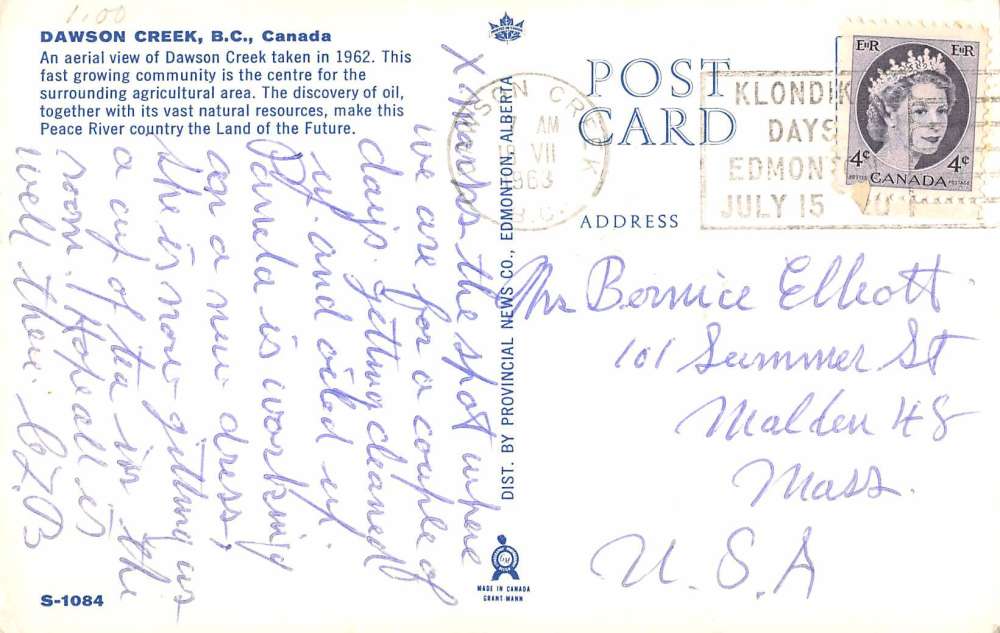 1.00
DAWSON CREEK, B.C., Canada
An aerial view of Dawson Creek taken in 1962. This
fast growing community is the centre for the
surrounding agricultural area. The discovery of oil,
together with its vast natural resources, make this
Peace River country the Land of the Future.
X marks the spot where
we are for a couple of
days. getting cleaned
up and oiled up.
Pamela is working
on a new dress,
She is now getting us
a cup of tea in the
room. Hope all is
well there.
S-1084
DIST. BY PROVINCIAL NEWS CO., EDMONTON, ALBERTA
MADE IN CANADA
GRANT-MANN
POST
CARD
ADDRESS
DAWSON CREEK
AM
VII
1963
B.C.
KLONDIK
DAYS
EDMONT
JULY 15
EIIR EIIR
4¢ 4¢
POSTES CANADA POSTAGE
Mrs Bernice Elliott
101 Summer St
Malden 48
Mass.
U.S.A